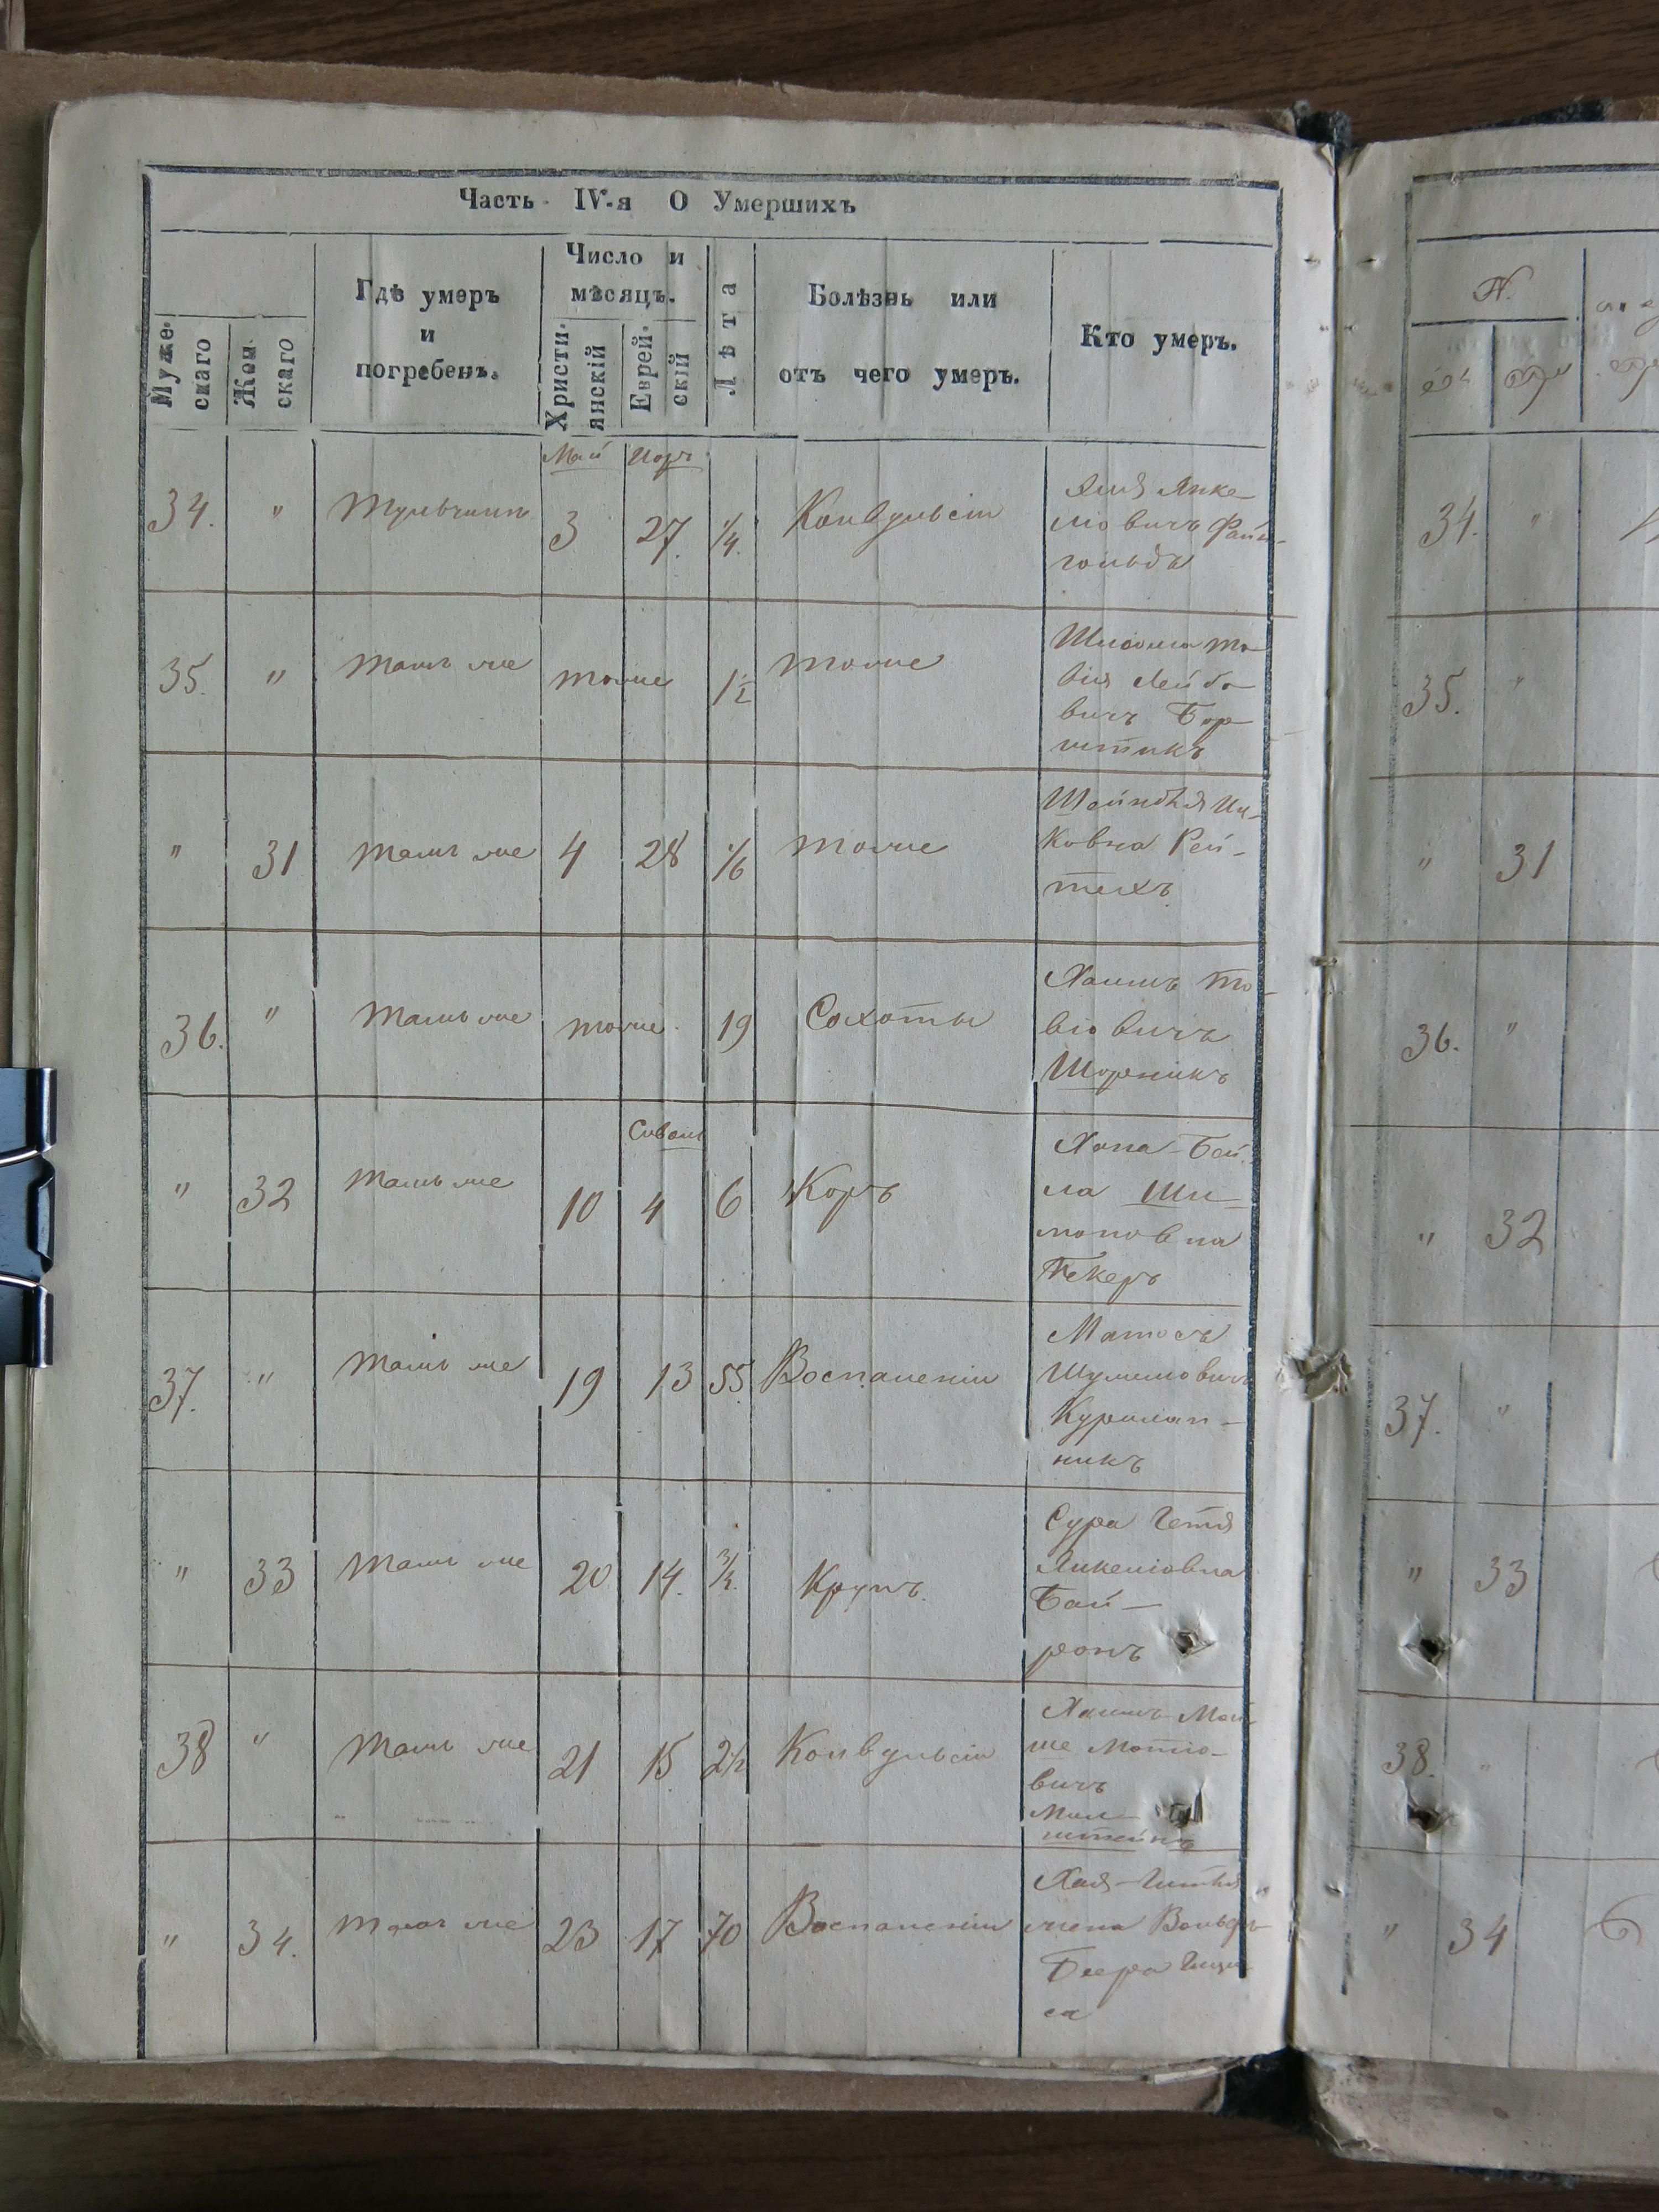 Часть IV-я О Умершихъ
Мужескаго
Женскаго
Гдѣ умеръ
и
погребенъ.
Число и
мѣсяцъ.
Христианскій
Еврейскій
Лѣта
Болѣзнь или
отъ чего умеръ.
Кто умеръ.
Май Іюръ
34. " Тульчинъ 3 27. 1/4. Конвульсіи
Янке-
ліовичъ Файн-
гольдъ
35. " тамъ же тоже 1½ тоже
Шлома То-
вія Лейбо-
вичъ Бор-
штикъ
" 31 тамъ же 4 28 1/6 тоже
Шейндля Иц-
ковна Рей-
тихъ
36. " тамъ же тоже 19 Сохоты
Хаимъ То-
віовичъ
Шорникъ
Сиванъ
" 32 тамъ же 10 4 6 Коръ
Хана-Бей
ла Ши-
моновна
Бекеръ
37. " тамъ же 19 13 55 Воспаленіи
Матесъ
Шулимовичъ
Курман-
никъ
" 33 тамъ же 20 14. 3/4. Крупъ.
Сура Гетя
Янкеліовна
Бай-
ронъ
38 " тамъ же 21 15 2½ Конвульсіи
Хаимъ Мой
ше Мотіо-
вичъ
Мил-
штейнъ
" 34. тамъ же 23 17 70 Воспаленіи
Хая-Гитля
жена Вольфъ
Беера
са
N.
34. "
35. "
" 31
36. "
" 32
37. "
" 33
38. "
" 34